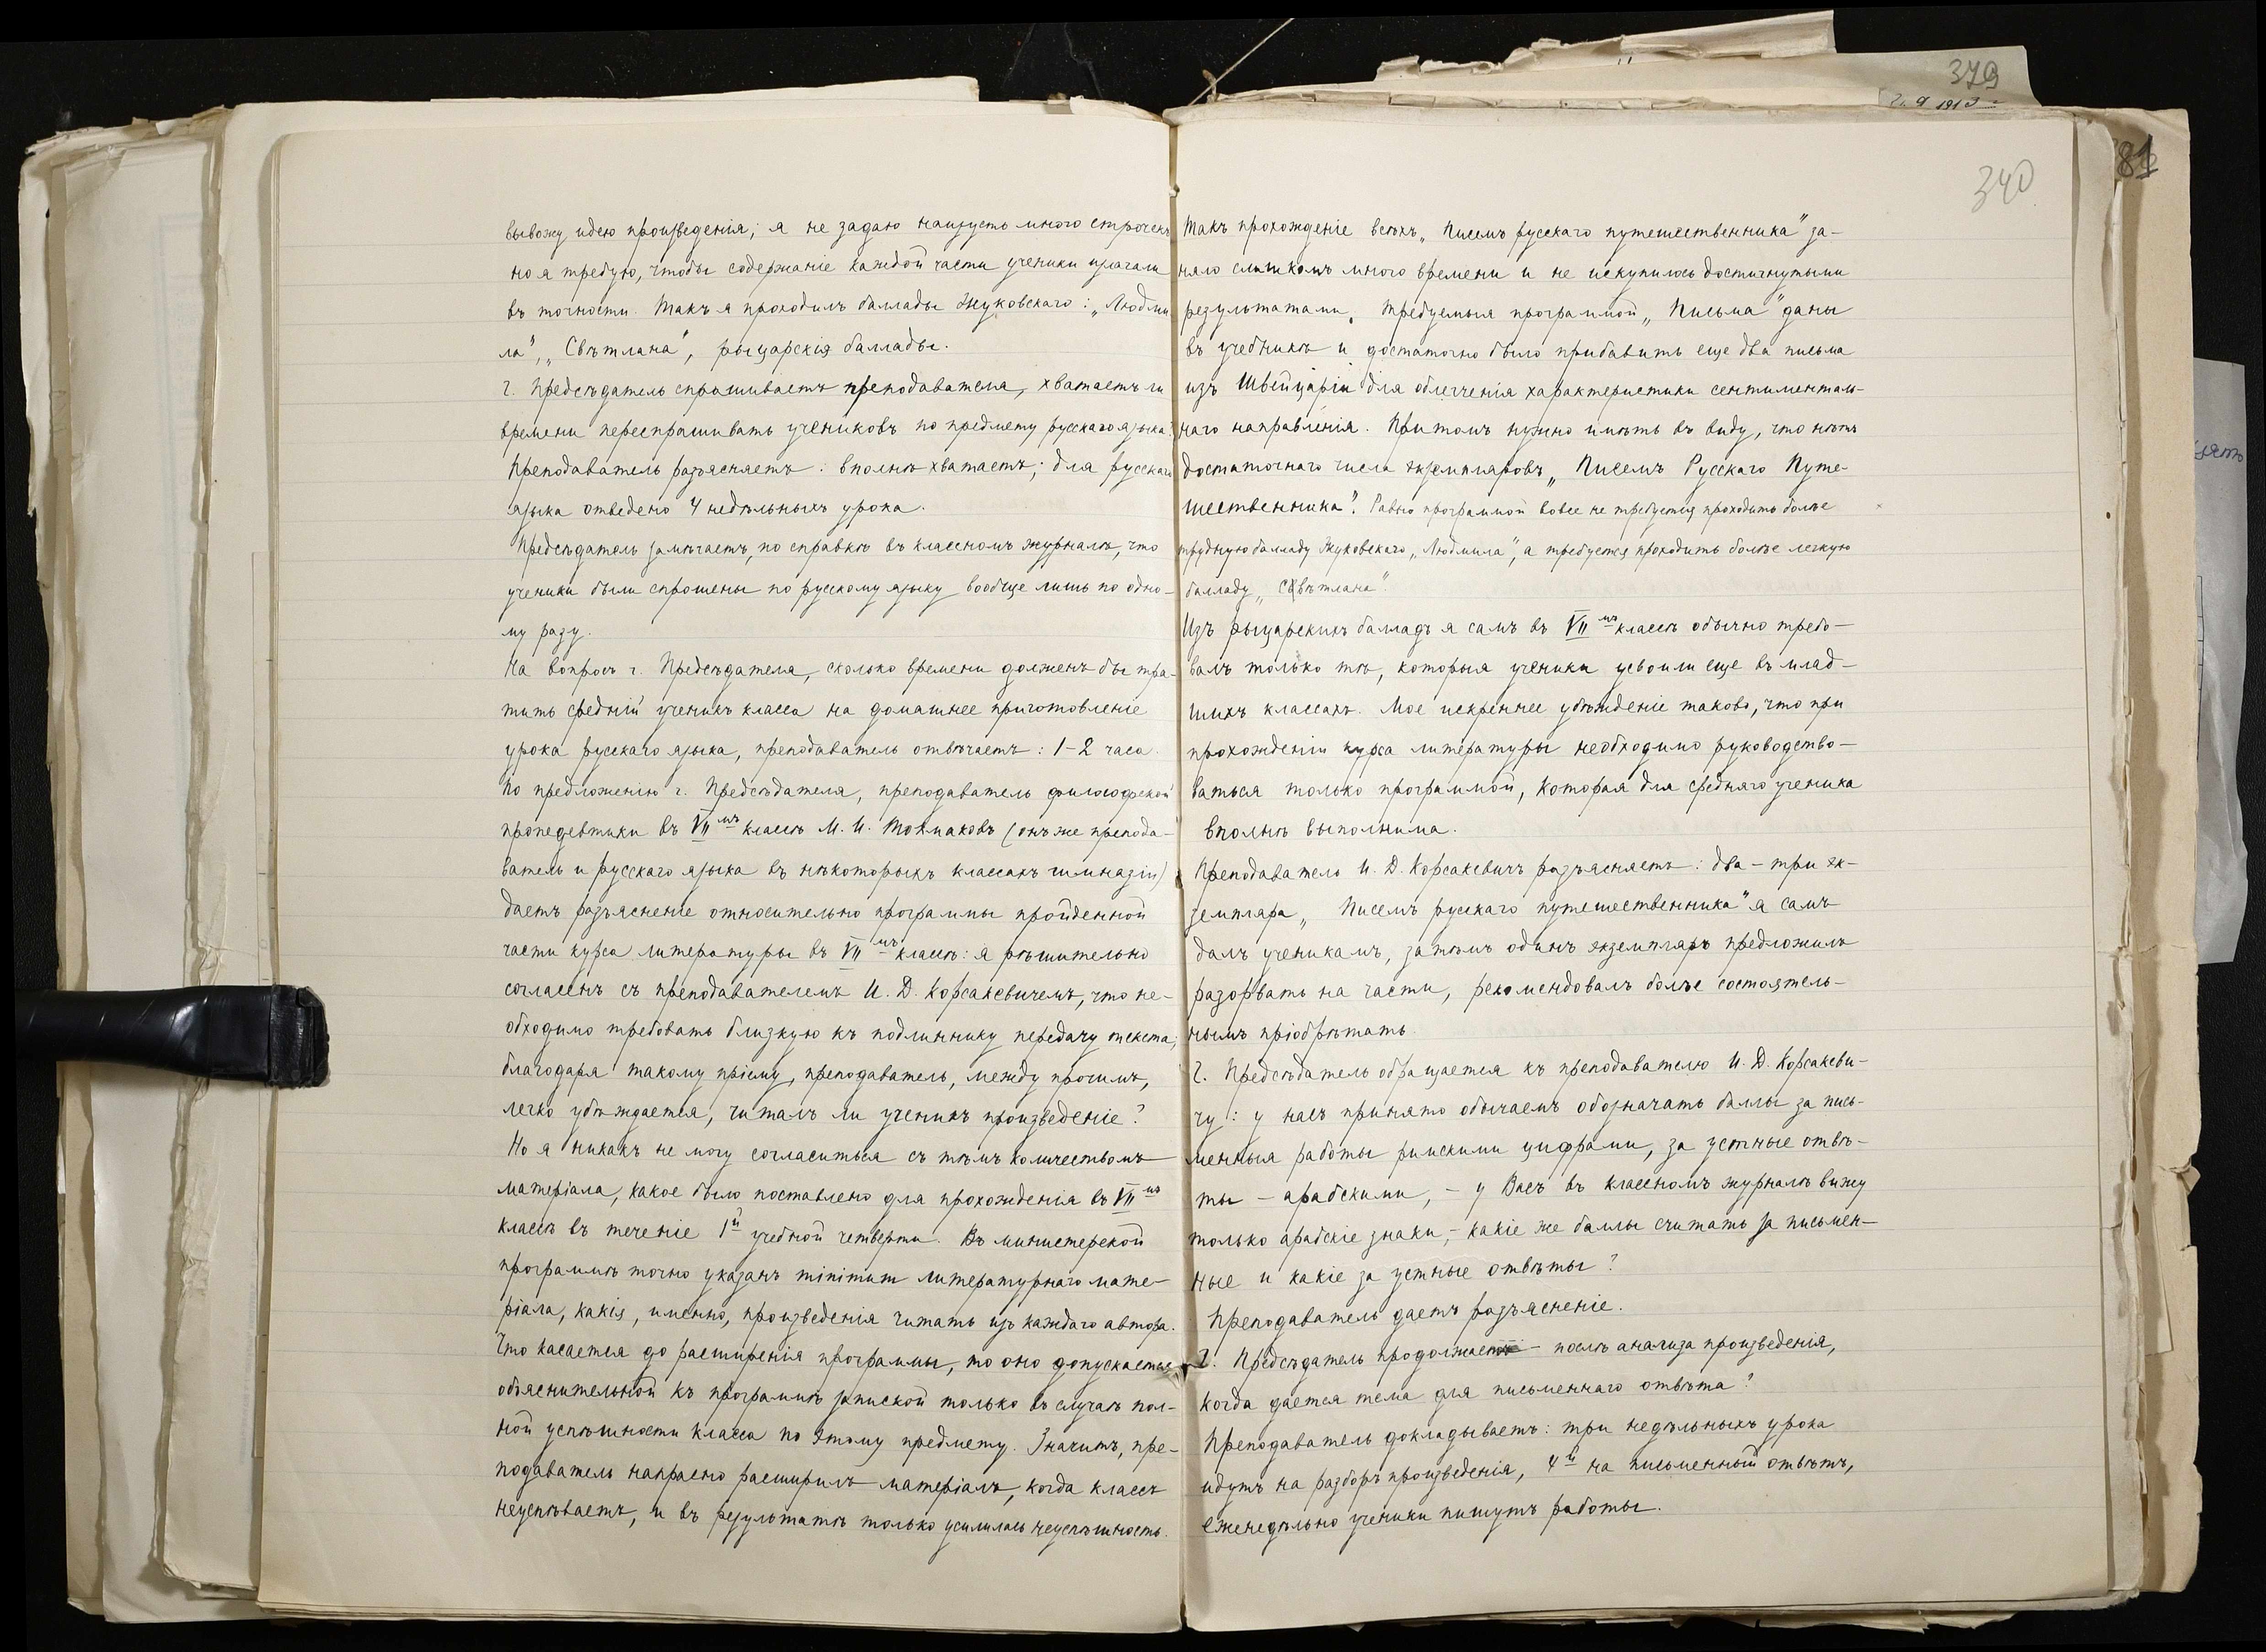 вывожу идею произведенія; я не задаю наизусть много строчекъ
но я требую, чтобы содержаніе каждой части ученики излагали
въ точности. Такъ я проходилъ баллады Жуковскаго: „Людми
ла", „Свѣтлана", рыцарскія баллады.
Г. Предсѣдатель спрашиваетъ преподавателя, хватаетъ ли
времени переспрашивать учениковъ по предмету русскаго языка.
Преподаватель разъясняетъ: вполнѣ хватаетъ; для русскаго
языка отведено 4 недѣльныхъ урока.
Предсѣдатель замѣчаетъ, по справкѣ въ классномъ журналѣ, что
ученики были спрошены по русскому языку вообще лишь по одно-
му разу.
На вопросъ г. Предсѣдателя, сколько времени долженъ бы тра-
тить средній ученикъ класса на домашнее приготовленіе
урока русскаго языка, преподаватель отвѣчаетъ: 1-2 часа.
По предложенію г. Предсѣдателя, преподаватель философской
пропедевтики въ VII мъ классѣ М. И. Толмаковъ (онъ же препода-
ватель и русскаго языка въ нѣкоторыхъ классахъ гимназіи)
даетъ разъясненіе относительно программы пройденной
части курса литературы въ VII мъ классѣ: я рѣшительно
согласенъ съ преподавателемъ И. Д. Корсакевичемъ, что не-
обходимо требовать близкую къ подлиннику передачу текста;
благодаря такому пріему, преподаватель, между прочимъ,
легко убѣждается, читалъ ли ученикъ произведеніе?
Но я никакъ не могу согласиться съ тѣмъ количествомъ
матеріала, какое было поставлено для прохожденія въ VII мъ
классѣ въ теченіе 1й учебной четверти. Въ министерской
программѣ точно указанъ minimum литературнаго мате-
ріала, какія, именно, произведенія читать изъ каждаго автора.
Что касается до расширенія программы, то оно допускается
объяснительной къ программѣ запиской только въ случаѣ пол-
ной успѣшности класса по этому предмету. Значитъ, пре-
подаватель напрасно расширилъ матеріалъ, когда классъ
неуспѣваетъ, и въ результатѣ только усилилась неуспѣшность.
379
1913
81
340
Такъ прохожденіе всѣхъ „Писемъ русскаго путешественника" за-
няло слишкомъ много времени и не искупилось достигнутыми
результатами. Требуемыя программой „Письма" даны
въ учебникѣ и достаточно было прибавить еще два письма
изъ Швейцаріи для облегченія характеристики сентименталь-
наго направленія. Притомъ нужно имѣть въ виду, что нѣтъ
достаточнаго числа экземпляровъ „Писемъ Русскаго Путе-
шественника". Равно программой вовсе не требуется проходить болѣе
трудную балладу Жуковскаго „Людмила", а требуется проходить болѣе легкую
балладу „Свѣтлана".
Изъ рыцарскихъ балладъ я самъ въ VII мъ классѣ обычно требо-
валъ только тѣ, которыя ученики усвоили еще въ млад-
шихъ классахъ. Мое искреннее убѣжденіе таково, что при
прохожденіи курса литературы необходимо руководство-
ваться только программой, которая для средняго ученика
вполнѣ выполнима.
Преподаватель И. Д. Корсакевичъ разъясняетъ: два-три эк-
земпляра „Писемъ русскаго путешественника" я самъ
далъ ученикамъ, затѣмъ одинъ экземпляръ предложилъ
разорвать на части, рекомендовалъ болѣе состоятель-
нымъ пріобрѣтать.
Г. Предсѣдатель обращается къ преподавателю И. Д. Корсакеви-
чу: у насъ принято обычаемъ обозначать баллы за пись-
менныя работы римскими цифрами, за устные отвѣ-
ты – арабскими, – у Васъ въ классномъ журналѣ вижу
только арабскіе знаки, – какіе же баллы считать за письмен-
ные и какіе за устные отвѣты?
Преподаватель даетъ разъясненіе.
Г. Предсѣдатель продолжаетъ – послѣ анализа произведенія,
когда дается тема для письменнаго отвѣта?
Преподаватель докладываетъ: три недѣльныхъ урока
идутъ на разборъ произведенія, 4й на письменный отвѣтъ,
еженедѣльно ученики пишутъ работы.